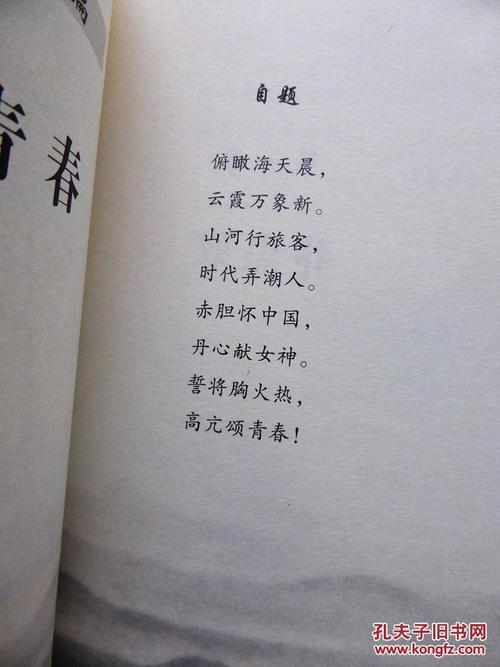 青春
自题
俯瞰海天晨，
云霞万象新。
山河行旅客，
时代弄潮人。
赤胆怀中国，
丹心献女神。
誓将胸火热，
高亢颂青春！
孔夫子旧书网
www.kongfz.com